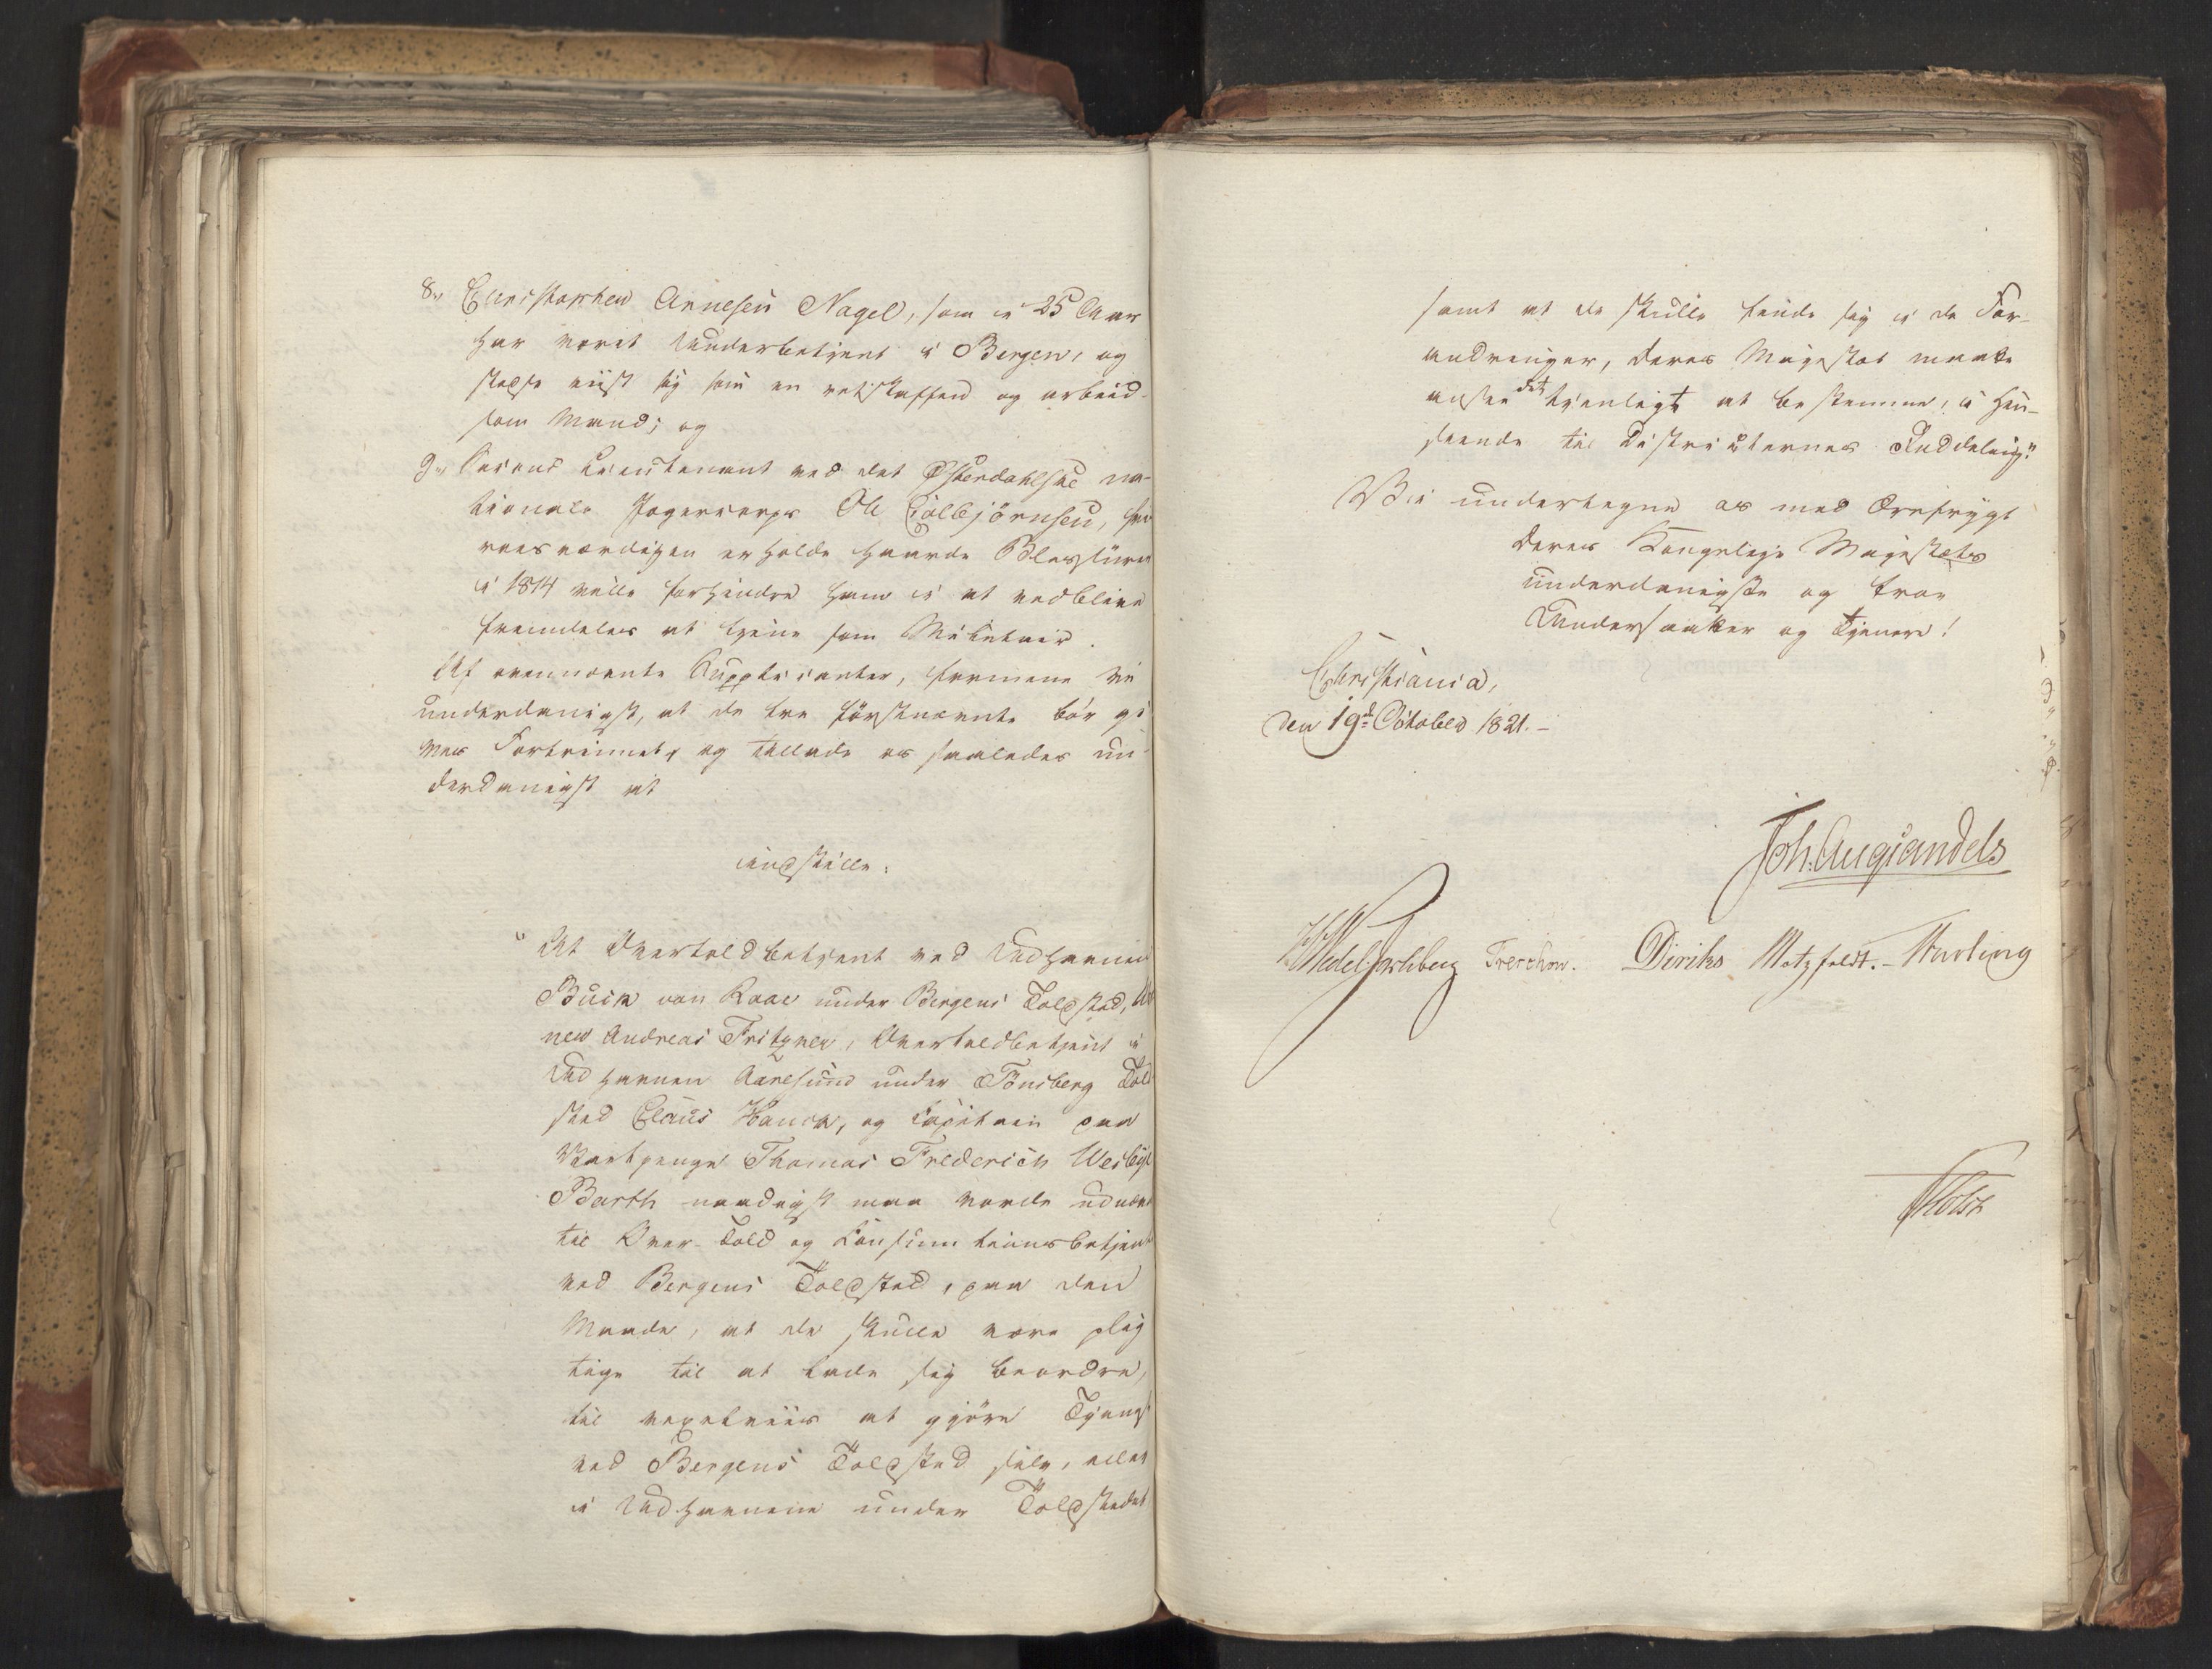 8, Christopher Arnesen Nagel, som i 25 Aar
har været Underbetjent i Bergen, og
stedse viist sig som en retskaffen og arbeid-
som Mand; og
9, Second Lieutenant ved det Østerdahlske na-
tionale Jægercorps Ole Colbjörnsen, hvis
ærværdigen erholdte haarde Blessurer
i 1814 ville forhindre ham i at vedblive
fremdeles at tjene som Militair.
Af ovennævnte Supplicanter, formene Vi
underdanigst, at de tre förstnævnte bör gi-
ves Fortrinnet, og tillade os saaledes un-
derdanigst at
indstille:
"At Overtoldbetjent ved Udhavnen
Buck van Raae under Bergens Toldsted,
new Andreas Fritzner, Overtoldbetjent i
Udhavnen Aarelsund under Tönsberg Told-
sted Claus Hauch, og Capitain paa
Vartpenge Thomas Frederich Wesley
Barth naadigst maa vorde udnævnt
til Over-Told og Consumtionsbetjente
ved Bergens Toldsted, paa den
Maade, at de skulle være plig-
tige til at lade sig beordre,
til vexelviis at gjöre Tjeneste
ved Bergens Toldsted selv, eller
i Udhavnene under Toldstedet
samt at de skulle finde sig i de For-
andringer, Deres Majestæt maatte
ansee det tjenligt at bestemme, i Hen-
seende til Districternes Inddeling."
Vi undertegne os med Ærefrygt
Deres Kongelige Majestæts
underdanigste og troe
Undersaatter og Tjenere!
Christiania,
den 19d October 1821.-
Joh. Aug. Sandels
HWedel Jarlsberg Treschow. Diriks Motzfeldt.- Harling
Holst